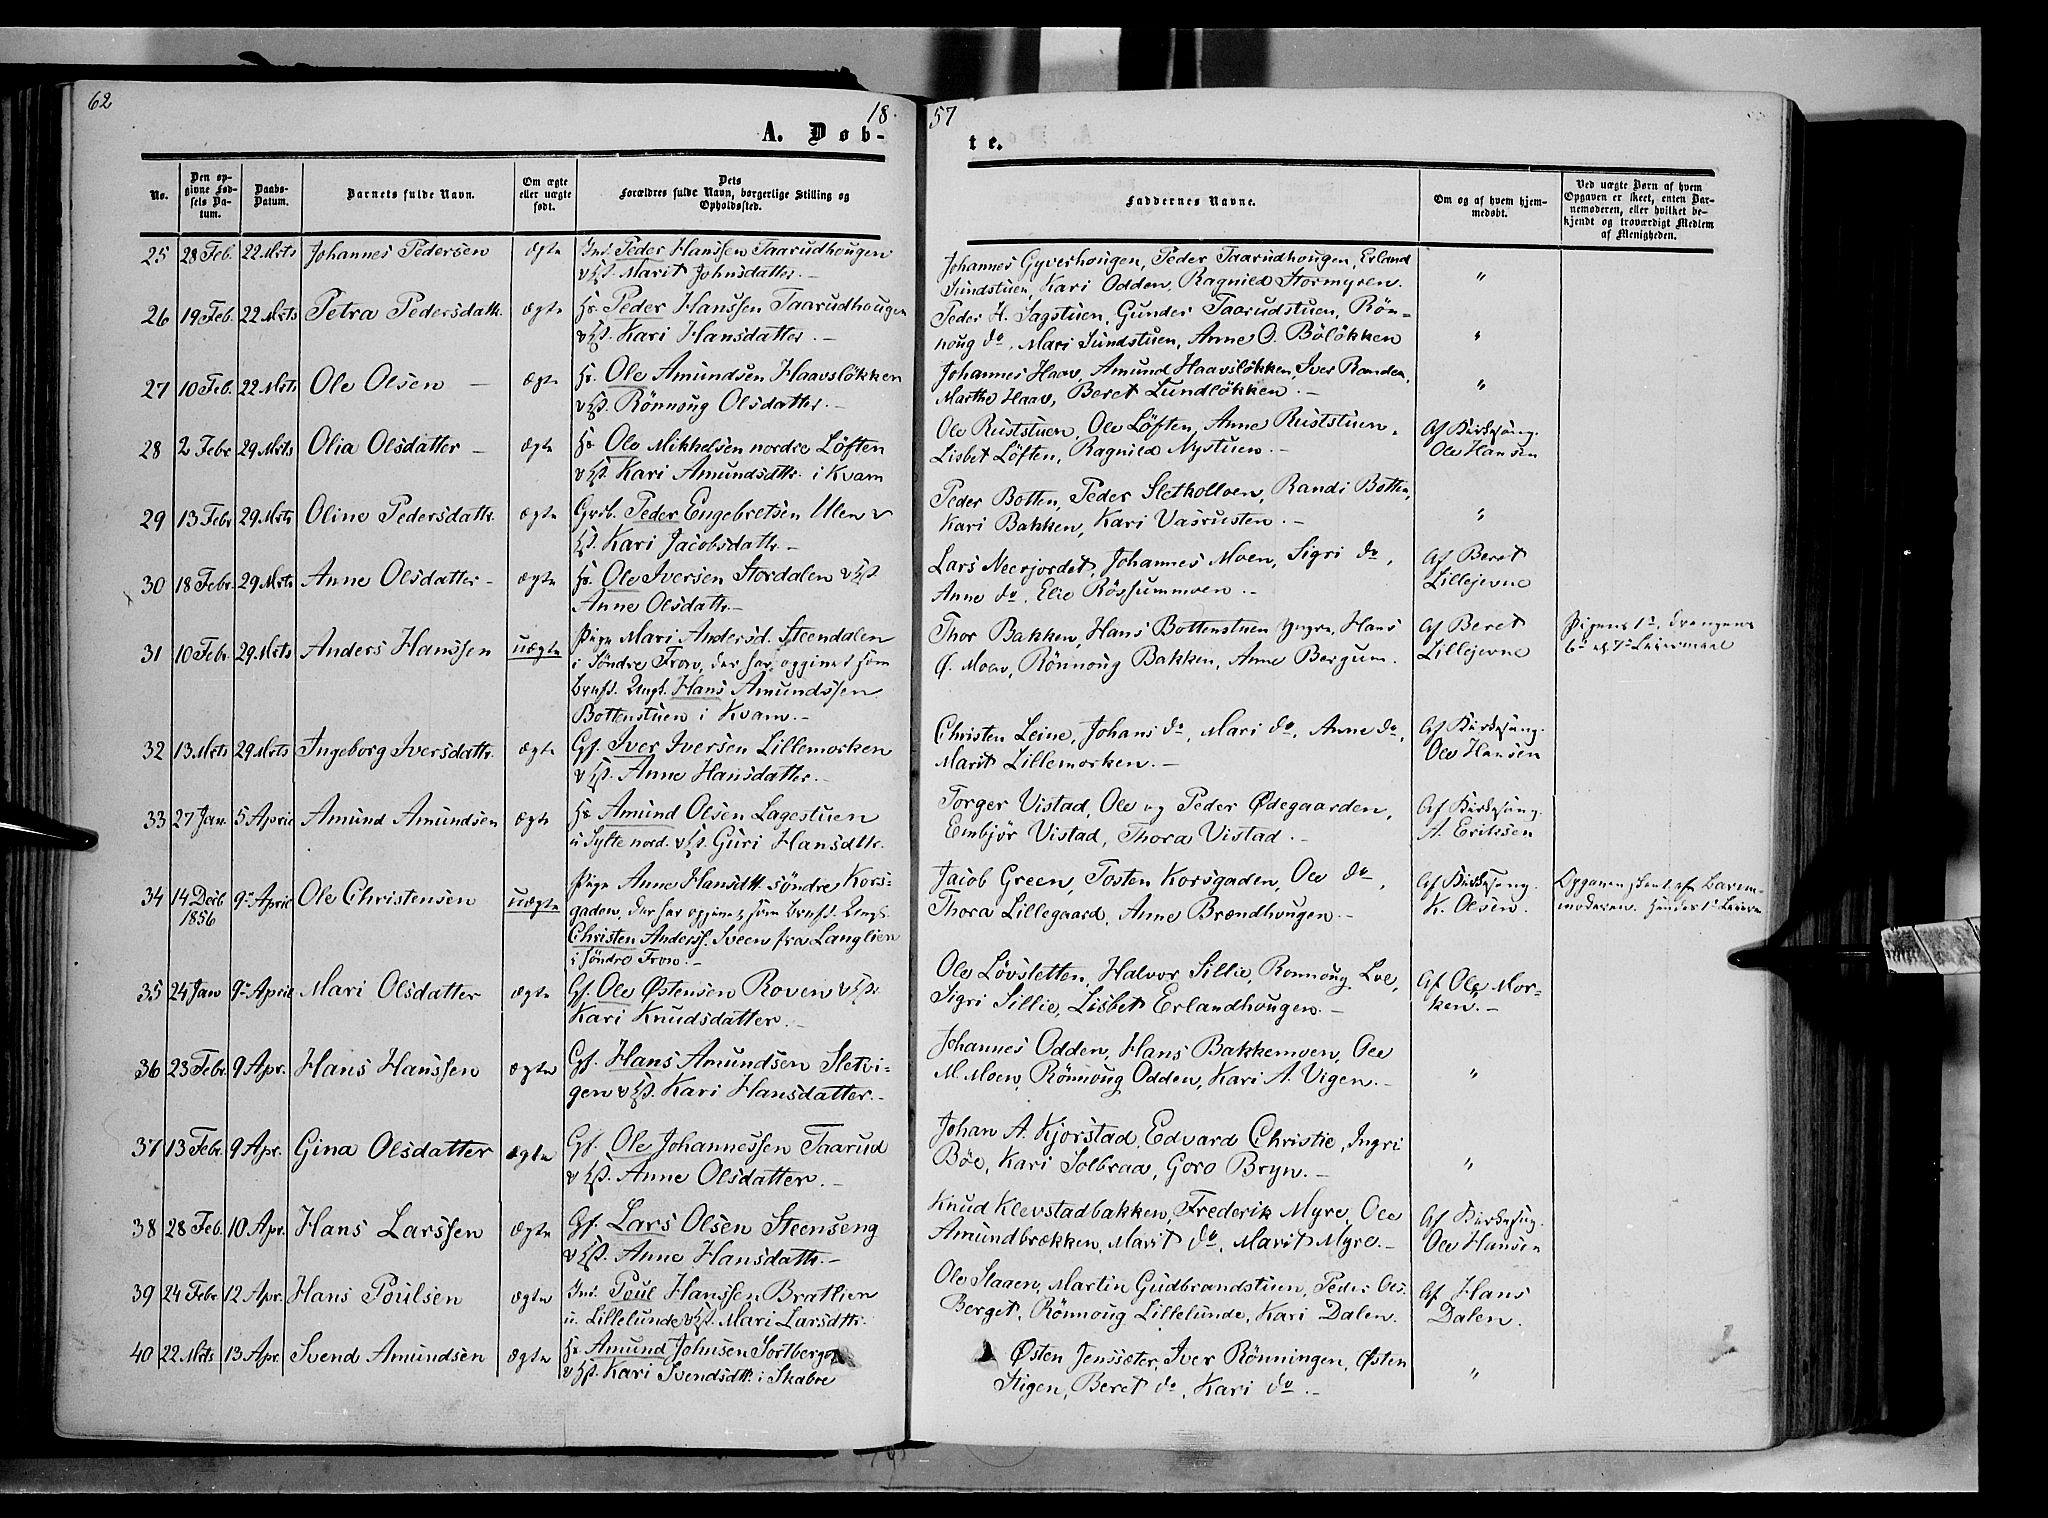 62
18
57
A. Døb-
te.
No.
Den op-
givne Fød-
sels Da-
tum.
Daabs-
Datum.
Barnets fulde Navn.
Om ægte
eller uægte
født.
Dets
Forældres fulde Navn, borgerlige Stilling og
Opholdssted.
Faddernes Navne.
Om og af hvem hjem-
medøbt.
Ved uægte Børn af hvem
Opgaven er skeet, enten Bar-
nemoderen, eller hvilket be-
kjendt og troværdigt Medlem
af Menigheden.
25 28 Feb. 22 Mrts Johannes Pedersen ægte Ind. Peder Hanssen Taarudhougen
v Hst. Marit Johnsdatter. —
Johannes Gyverhougen, Peder Taarudhougen, Erland
Sundstuen, Kari Odden, Ragnild Stormyren. "
26 19 Feb. 22 Mrts Petra Pedersdatt. ægte Hr. Peder Hanssen Taarudhougen
v Hst. Kari Hansdatter. —
Peder H. Sagstuen, Gunder Taarudstuen, Rön-
noug do, Mari Sundstuen, Anne O. Bölökken "
27 10 Feb. 22 Mrts Ole Olsen — ægte Hr. Ole Amundsen Haavslökken
v Hst. Rönnoug Olsdatter. —
Johannes Haav, Amund Haavslökken, Iver Randen,
Marthe Haav, Beret Lundlökken. — "
28 2 Febr 29 Mrts Olia Olsdatter — ægte Hr Ole Mikkelsen nordre Löften
v Hst. Kari Amundsdttr. i Kvam
Ole Ruststuen, Ole Löften, Anne Ruststuen,
Lisbet Löften, Ragnild Nystuen. —
Af Kirkesang.
Ole Hansen
29 13 Febr 29 Mrts Oline Pedersdatt. ægte Grb. Peder Engebretsen Ulen v
Hst. Kari Jacobsdattr. —
Peder Botten, Peder Sletkolloen, Randi Botten,
Kari Bakken, Kari Vasrusten. — "
30 18 Febr. 29 Mrts Anne Olsdatter — ægte Hr. Ole Iversen Stordalen v Hst
Anne Olsdattr. —
Lars Neerjordet, Johannes Moen, Sigri do,
Anne do, Elie Rössummoen. —
Af Beret
Lillejevne
31 10 Febr 29 Mrts Anders Hanssen uægte Pige Mari Andersd. Steendalen
i Söndre Fron, der har opgivet som
Barnf. Ungk. Hans Amundssen
Bottenstuen i Kvam. —
Thor Bakken, Hans Bottenstuen yngre, Hans
O. Moen, Rönnoug Bakken, Anne Bergum.
Af Beret
Lillejevne
Pigens 1ste, Drengens
6te el. 7de Leiermaal
32 13 Mrts 29 Mrts Ingeborg Iversdattr. ægte Gf. Iver Iversen Lillemorken
v Hst. Anne Hansdatter. —
Christen Leine, Johans do, Mari do, Anne do,
Marit Lillemorken. —
Af Kirkesang.
Ole Hansen
33 27 Jan. 5 April Amund Amundsen ægte Hr Amund Olsen Lagestuen
u Sylte nord. v Hst. Guri Hansdttr.
Torger Vistad, Ole og Peder Ødegaarden,
Embjör Vistad, Thora Vistad. —
Af Kirkesang.
A. Eriksen
34 14 Decb 1856 9de April Ole Christensen uægte Pige Anne Hansdtt. söndre Kors-
gaden, der har opgivet som Barnf. Ungk.
Christen Anderss. Sveen fra Langlien
i Söndre Fron. —
Jacob Green, Tosten Korsgaden, Ole do,
Thora Lillegaard, Anne Brændhougen. —
Af Kirkesang.
K. Olsen.
Opgaven skeet af Barne-
moderen. Hendes 1ste Leierm
35 24 Jan 9de April Mari Olsdatter ægte Gf. Ole Østensen Roven v Hst.
Kari Knudsdatter. —
Ole Lövsletten, Halvor Sillie, Ronnoug Loe,
Sigri Sillie, Lisbet Erlandhougen. —
Af Ole Mor-
ken. —
36 23 Febr. 9 Apr. Hans Hanssen ægte Gf. Hans Amundsen Sletvi-
gen v Hst. Kari Hansdatter. —
Johannes Odden, Hans Bakkemoen, Ole
M. Moen, Rönnoug Odden, Kari A. Vigen. — "
37 13 Febr. 9 Apr. Gina Olsdatter ægte Gf. Ole Johannessen Taarud
v Hst. Anne Olsdatter. —
Johan A. Kjorstad, Edvard Christie, Ingri
Böe, Kari Solbraa, Goro Bryn. — "
38 28 Feb. 10 Apr. Hans Larssen ægte Gf. Lars Olsen Steenseng
v Hst. Anne Hansdattr. —
Knud Klevstadbakken, Frederik Myre, Ole
Amundbrækken, Marit do, Marit Myre. —
Af Kirkesang.
Ole Hansen
39 24 Febr 12 Apr. Hans Poulsen ægte Ind. Poul Hanssen Brattlien
u. Lillelunde v Hst. Mari Larsdttr.
Ole Slaaen, Martin Gudbrandstuen, Peder Ols.
Berget, Rönnoug Lillelunde, Kari Dalen.
Af Hans
Dalen.
40 22 Mrts 13 Apr. Svend Amundsen ægte Hr Amund Johnsen Sortberget
v Hst. Kari Svendsdtt. i Skabre
Østen Jenssæter, Iver Rönningen, Østen
Stigen, Beret do, Kari do. — "